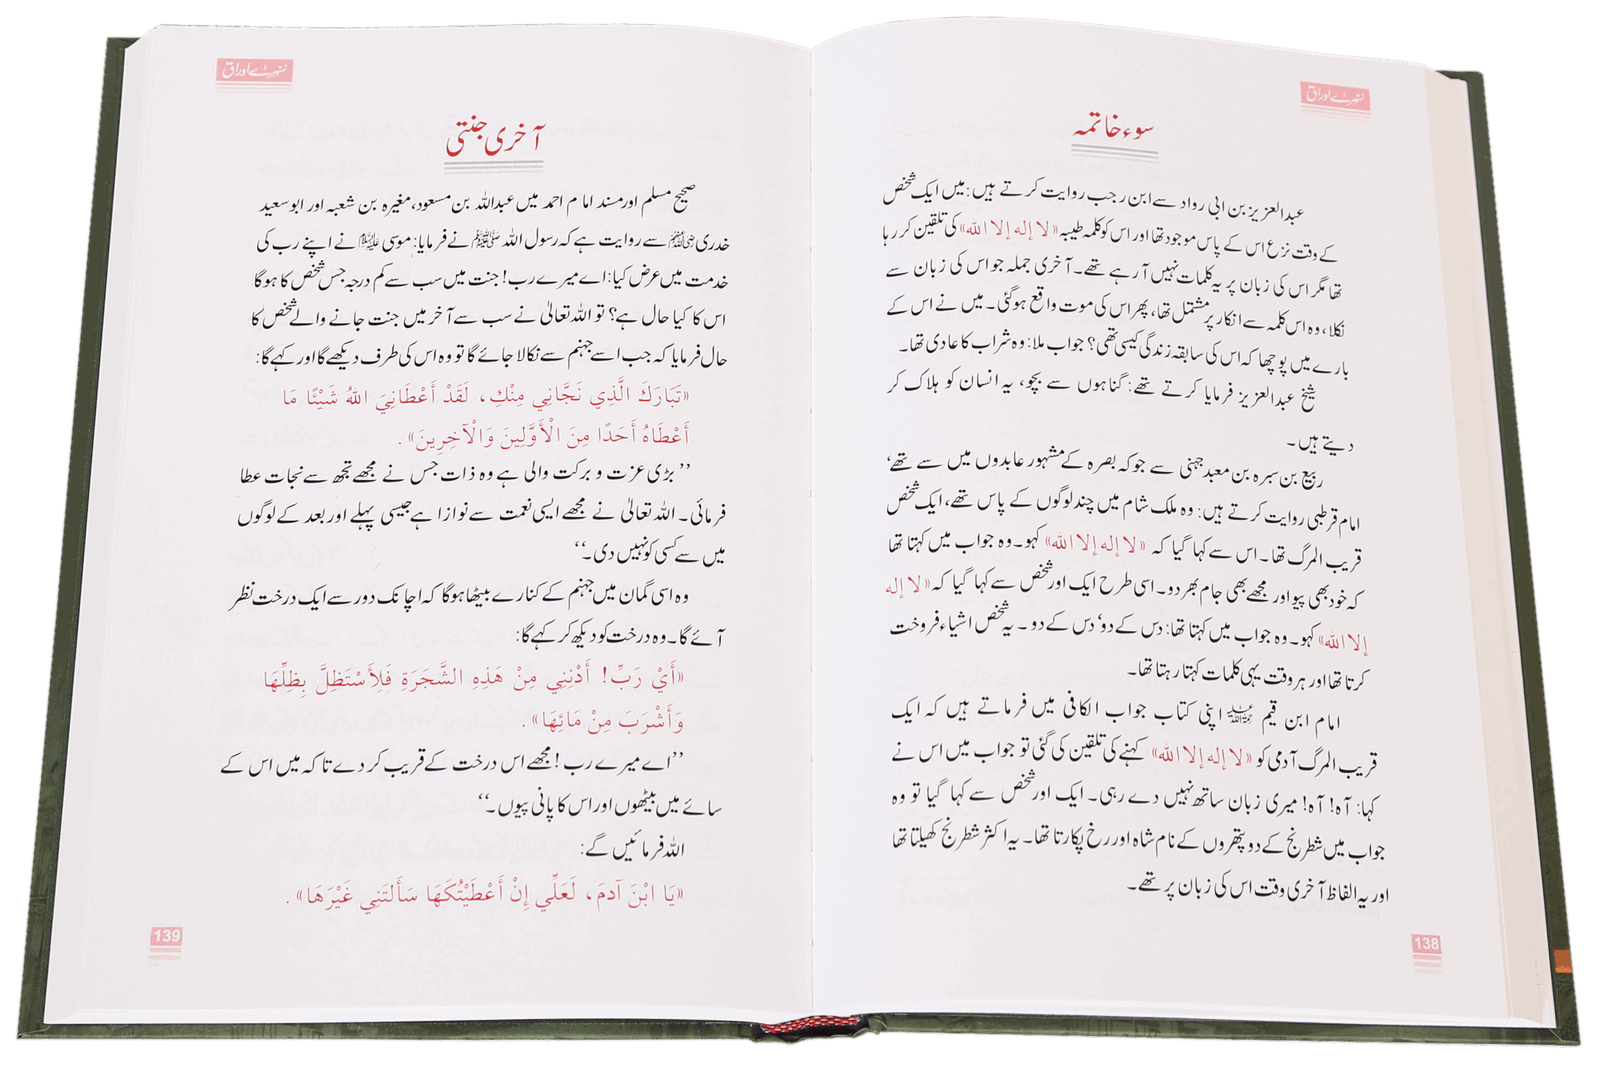 سنہرے اوراق
سوء خاتمہ
عبدالعزیز بن ابی رواد سے ابن رجب روایت کرتے ہیں: میں ایک شخص
کے وقت نزع اس کے پاس موجود تھا اور اس کو کلمہ طیبہ «لا إله إلا الله» کی تلقین کر رہا
تھا مگر اس کی زبان پر یہ کلمات نہیں آ رہے تھے۔ آخری جملہ جو اس کی زبان سے
نکلا، وہ اس کلمہ سے انکار پر مشتمل تھا، پھر اس کی موت واقع ہو گئی۔ میں نے اس کے
بارے میں پوچھا کہ اس کی سابقہ زندگی کیسی تھی؟ جواب ملا: وہ شراب کا عادی تھا۔
شیخ عبدالعزیز فرمایا کرتے تھے: گناہوں سے بچو، یہ انسان کو ہلاک کر
دیتے ہیں۔
ربیع بن سبرہ بن معبد جہنی سے جو کہ بصرہ کے مشہور عابدوں میں سے تھے،
امام قرطبی روایت کرتے ہیں: وہ ملک شام میں چند لوگوں کے پاس تھے، ایک شخص
قریب المرگ تھا۔ اس سے کہا گیا کہ «لا إله إلا الله» کہو۔ وہ جواب میں کہتا تھا
کہ خود بھی پیو اور مجھے بھی جام بھر دو۔ اسی طرح ایک اور شخص سے کہا گیا کہ «لا إله
إلا الله» کہو۔ وہ جواب میں کہتا تھا: دس کے دو، دس کے دو۔ یہ شخص اشیاء فروخت
کرتا تھا اور ہر وقت یہی کلمات کہتا رہتا تھا۔
امام ابن قیم رحمہ اللہ اپنی کتاب جواب الکافی میں فرماتے ہیں کہ ایک
قریب المرگ آدمی کو «لا إله إلا الله» کہنے کی تلقین کی گئی تو جواب میں اس نے
کہا: آہ! آہ! میری زبان ساتھ نہیں دے رہی۔ ایک اور شخص سے کہا گیا تو وہ
جواب میں شطرنج کے دو پتھروں کے نام شاہ اور رخ پکارتا تھا۔ یہ اکثر شطرنج کھیلتا تھا
اور یہ الفاظ آخری وقت اس کی زبان پر تھے۔
138
سنہرے اوراق
آخری جنتی
صحیح مسلم اور مسند امام احمد میں عبداللہ بن مسعود، مغیرہ بن شعبہ اور ابو سعید
خدری رضی اللہ عنہم سے روایت ہے کہ رسول اللہ ﷺ نے فرمایا: موسی علیہ السلام نے اپنے رب کی
خدمت میں عرض کیا: اے میرے رب! جنت میں سب سے کم درجہ جس شخص کا ہو گا
اس کا کیا حال ہے؟ تو اللہ تعالیٰ نے سب سے آخر میں جنت جانے والے شخص کا
حال فرمایا کہ جب اسے جہنم سے نکالا جائے گا تو وہ اس کی طرف دیکھے گا اور کہے گا:
«تَبَارَكَ الَّذِي نَجَّانِي مِنْكِ، لَقَدْ أَعْطَانِيَ اللهُ شَيْئًا مَا
أَعْطَاهُ أَحَدًا مِنَ الْأَوَّلِينَ وَالْآخِرِينَ».
’’بڑی عزت و برکت والی ہے وہ ذات جس نے مجھے تجھ سے نجات عطا
فرمائی۔ اللہ تعالیٰ نے مجھے ایسی نعمت سے نوازا ہے جیسی پہلے اور بعد کے لوگوں
میں سے کسی کو نہیں دی۔‘‘
وہ اسی گمان میں جہنم کے کنارے بیٹھا ہو گا کہ اچانک دور سے ایک درخت نظر
آئے گا۔ وہ درخت کو دیکھ کر کہے گا:
«أَيْ رَبِّ! أَدْنِنِي مِنْ هَذِهِ الشَّجَرَةِ فَلِأَسْتَظِلَّ بِظِلِّهَا
وَأَشْرَبَ مِنْ مَائِهَا».
’’اے میرے رب! مجھے اس درخت کے قریب کر دے تا کہ میں اس کے
سائے میں بیٹھوں اور اس کا پانی پیوں۔‘‘
اللہ فرمائیں گے:
«يَا ابْنَ آدَمَ، لَعَلِّي إِنْ أَعْطَيْتُكَهَا سَأَلتَنِي غَيْرَهَا».
139